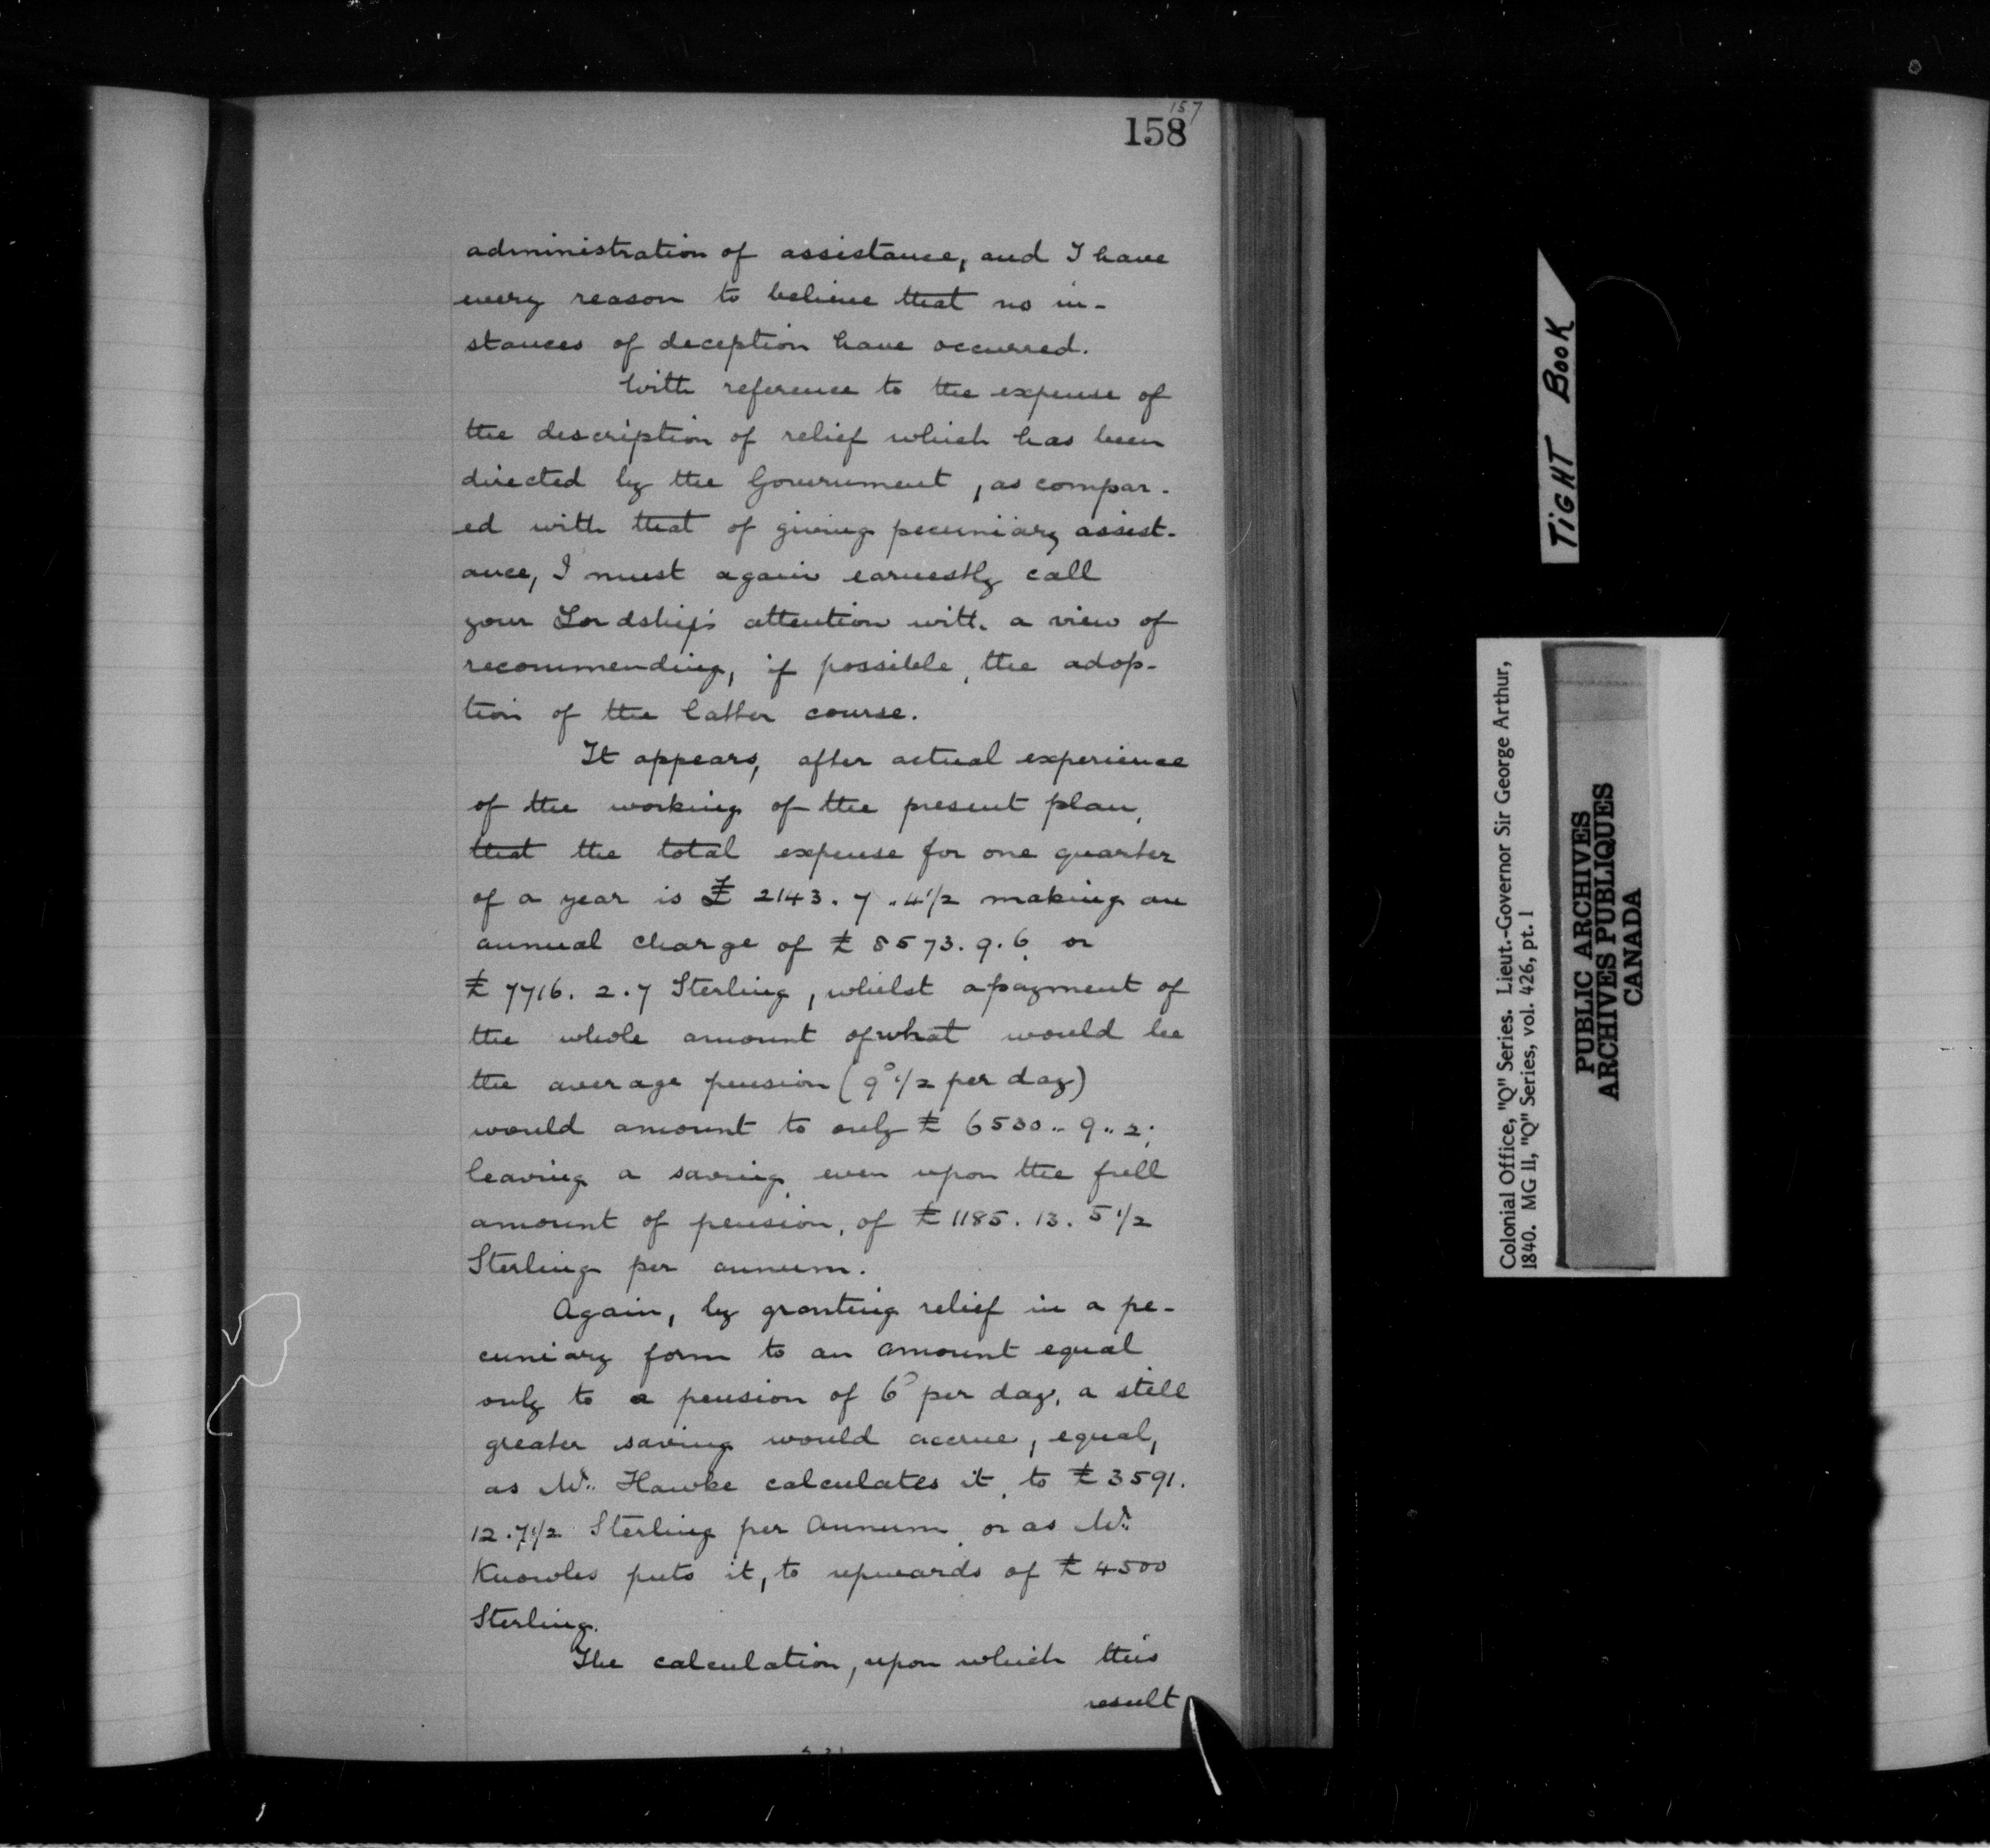 157
158
administration of assistance, and I have
every reason to believe that no in-
stances of deception have occurred.
With reference to the expense of
the description of relief which has been
directed by the Government, as compar-
ed with that of giving pecuniary assist-
ance, I must again earnestly call
your Lordship's attention with a view of
recommending, if possible, the adop-
tion of the latter course.
It appears, after actual experience
of the working of the present plan,
that the total expense for one quarter
of a year is £ 2143. 7 .. 4 1/2 making an
annual charge of £ 8573. 9. 6. or
£ 7716. 2. 7 Sterling, whilst a payment of
the whole amount of what would be
the average pension (9ᴰ 1/2 per day)
would amount to only £ 6530 .. 9 .. 2;
leaving a saving, even upon the full
amount of pension, of £ 1185. 13. 5 1/2
Sterling per annum.
Again, by granting relief in a pe-
cuniary form to an amount equal
only to a pension of 6ᴰ per day, a still
greater saving would accrue, equal,
as Mr. Hawke calculates it, to £ 3591.
12. 7 1/2 Sterling per annum, or as Mr.
Knowles puts it, to upwards of £ 4500
Sterling.
The calculation, upon which this
result
TIGHT BOOK
Colonial Office, "Q" Series. Lieut.-Governor Sir George Arthur,
1840. MG 11, "Q" Series, vol. 426, pt. 1
PUBLIC ARCHIVES
ARCHIVES PUBLIQUES
CANADA